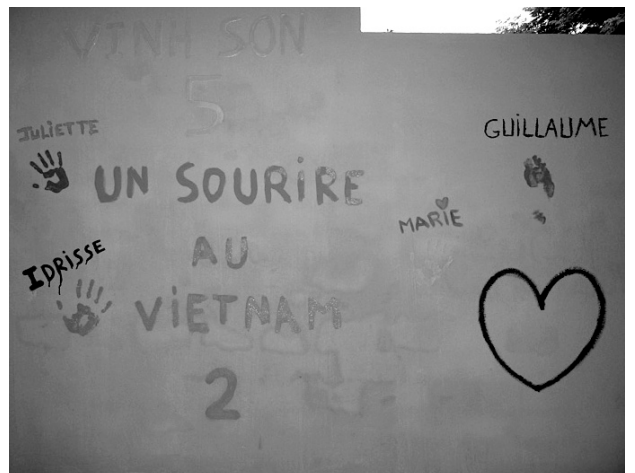 VINH SON
5
JULIETTE
GUILLAUME
UN SOURIRE
MARIE
AU
IDRISSE
VIETNAM
2